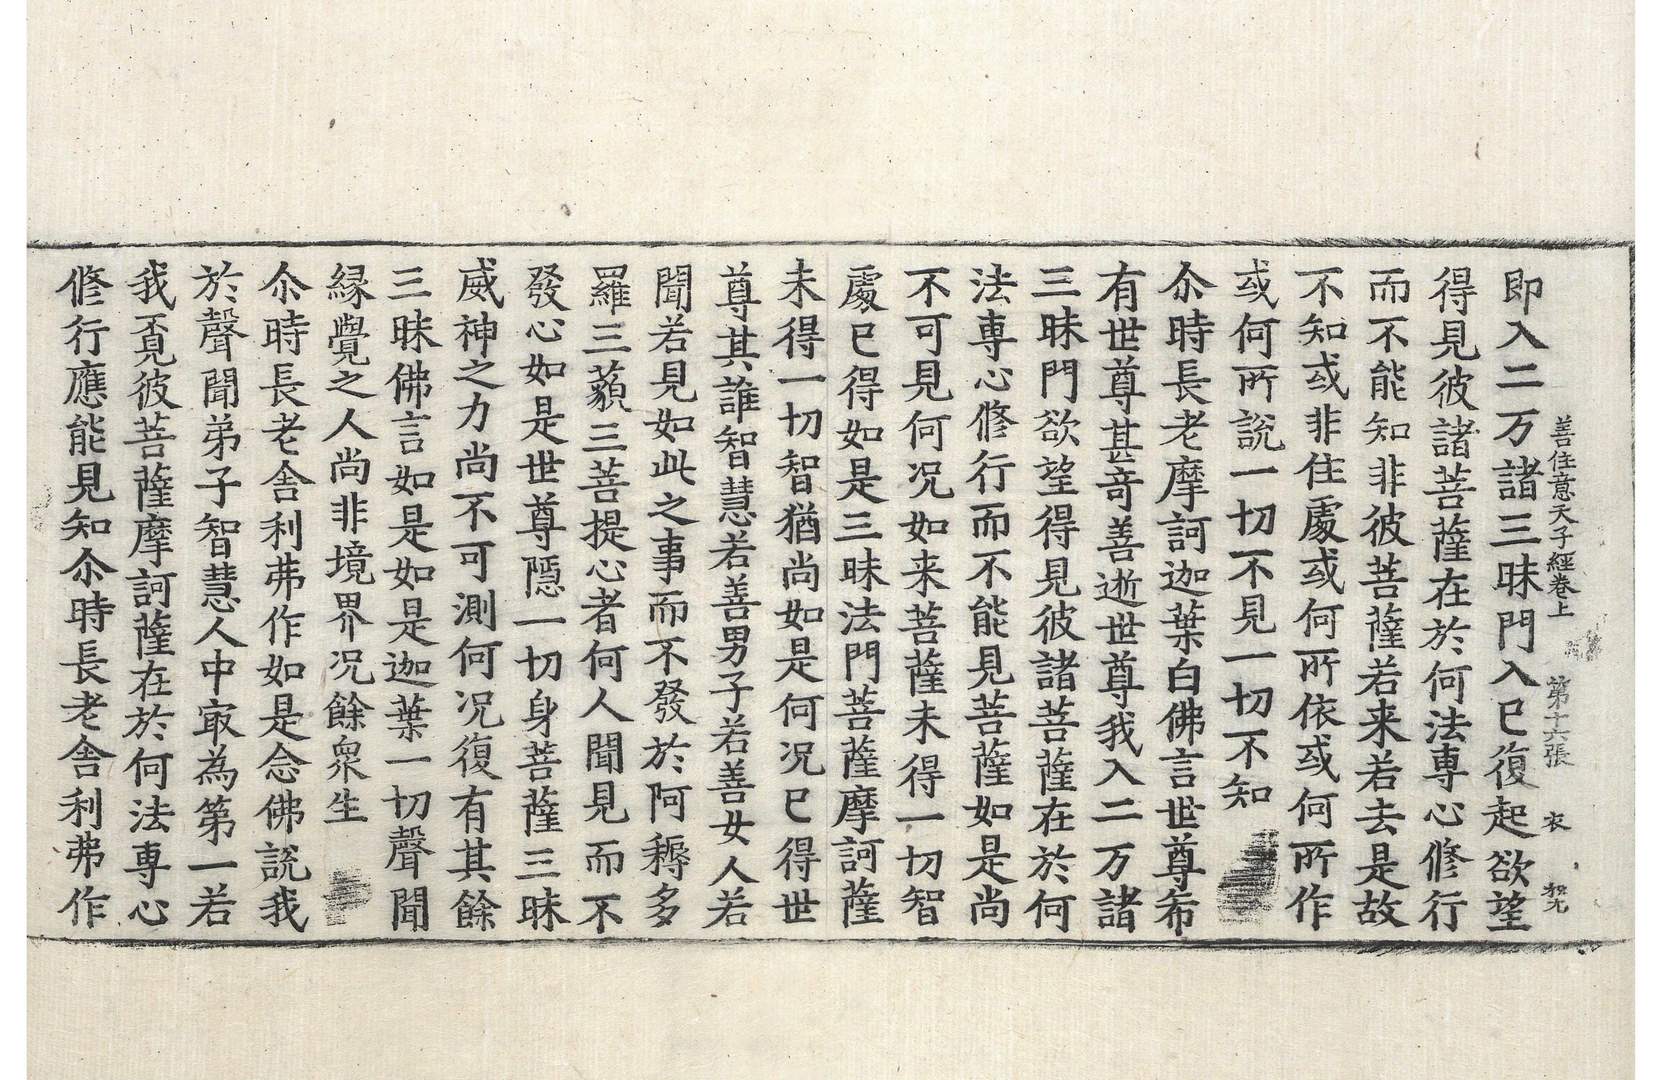 善住意天子經卷上 第十六張 衣
即入二万諸三昧門入已復起欲望
得見彼諸菩薩在於何法專心修行
而不能知非彼菩薩若来若去是故
不知或非住處或何所依或何所作
或何所說一切不見一切不知
尒時長老摩訶迦葉白佛言世尊希
有世尊甚奇善逝世尊我入二万諸
三昧門欲望得見彼諸菩薩在於何
法專心修行而不能見菩薩如是尚
不可見何况如来菩薩未得一切智
處已得如是三昧法門菩薩摩訶薩
未得一切智猶尚如是何况已得世
尊其誰智慧若善男子若善女人若
聞若見如此之事而不發於阿耨多
羅三藐三菩提心者何人聞見而不
發心如是世尊隱一切身菩薩三昧
威神之力尚不可測何况復有其餘
三昧佛言如是如是迦葉一切聲聞
緣覺之人尚非境界况餘衆生
尒時長老舍利弗作如是念佛說我
於聲聞弟子智慧人中㝡為第一若
我覔彼菩薩摩訶薩在於何法專心
修行應能見知尒時長老舍利弗作